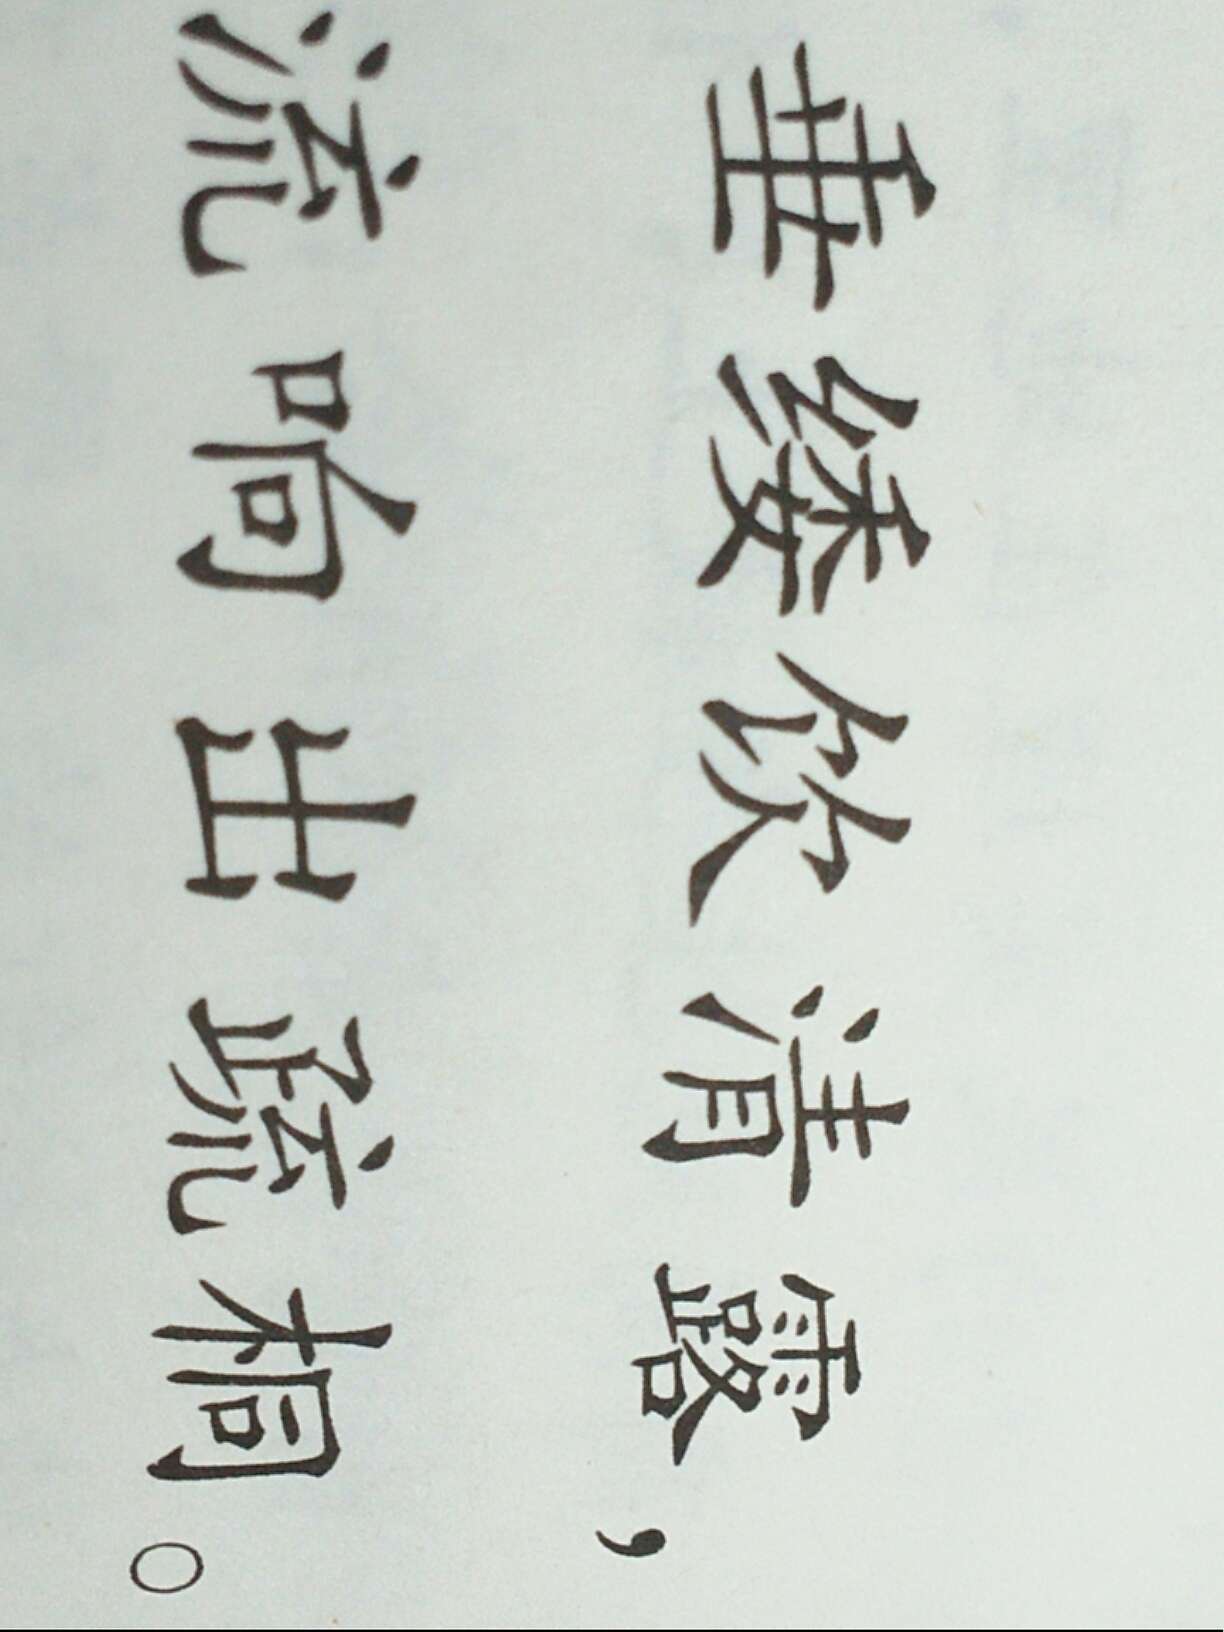 垂緌饮清露，
流响出疏桐。